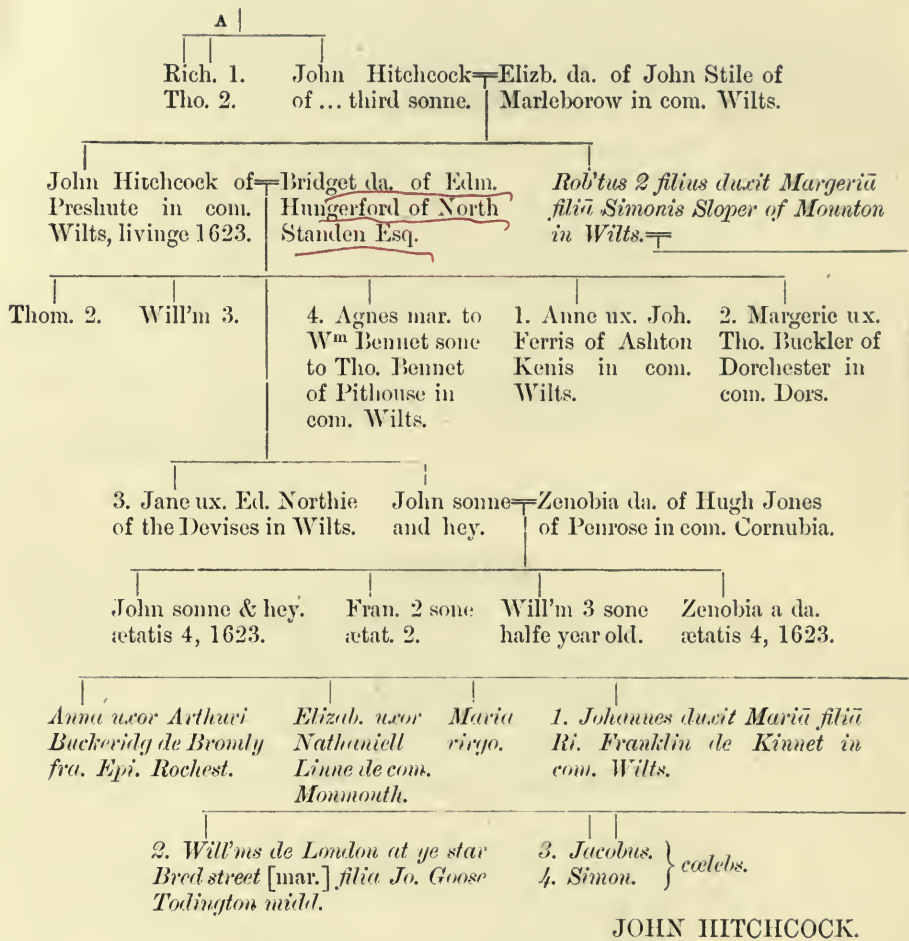 A
Rich. 1.
Tho. 2.
John Hitchcock
of ... third sonne.
Elizb. da. of John Stile of
Marleborow in com. Wilts.
John Hitchcock of
Preshute in com.
Wilts, livinge 1623.
Bridget da. of Edm.
Hungerford of North
Standen Esq.
Rob'tus 2 filius duxit Margeriā
filiā Simonis Sloper of Mounton
in Wilts.
Thom. 2.
Will'm 3.
4. Agnes mar. to
Wᵐ Bennet sone
to Tho. Bennet
of Pithouse in
com. Wilts.
1. Anne ux. Joh.
Ferris of Ashton
Kenis in com.
Wilts.
2. Margerie ux.
Tho. Buckler of
Dorchester in
com. Dors.
3. Jane ux. Ed. Northie
of the Devises in Wilts.
John sonne
and hey.
Zenobia da. of Hugh Jones
of Penrose in com. Cornubia.
John sonne & hey.
ætatis 4, 1623.
Fran. 2 sone
ætat. 2.
Will'm 3 sone
halfe year old.
Zenobia a da.
ætatis 4, 1623.
Anna uxor Arthuri
Buckeridg de Bromly
fra. Epi. Rochest.
Elizab. uxor
Nathaniell
Linne de com.
Monmouth.
Maria
virgo.
1. Johannes duxit Mariā filiā
Ri. Franklin de Kinnet in
com. Wilts.
2. Will'ms de London at ye star
Bred street [mar.] filia Jo. Goose
Todington midd.
3. Jacobus.
4. Simon.
} cœlebs.
JOHN HITCHCOCK.